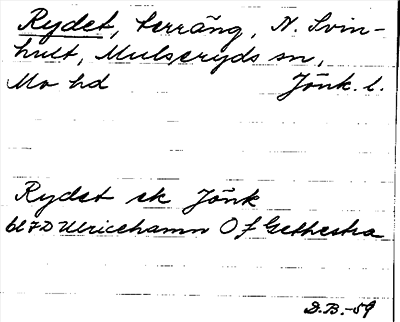 Rydet, terräng, N. Svin-
hult, Mulseryds sn,
Mo hd Jönk. l.
Rydet ek Jönk
bl 7D Ulricehamn Of
D.B.-59